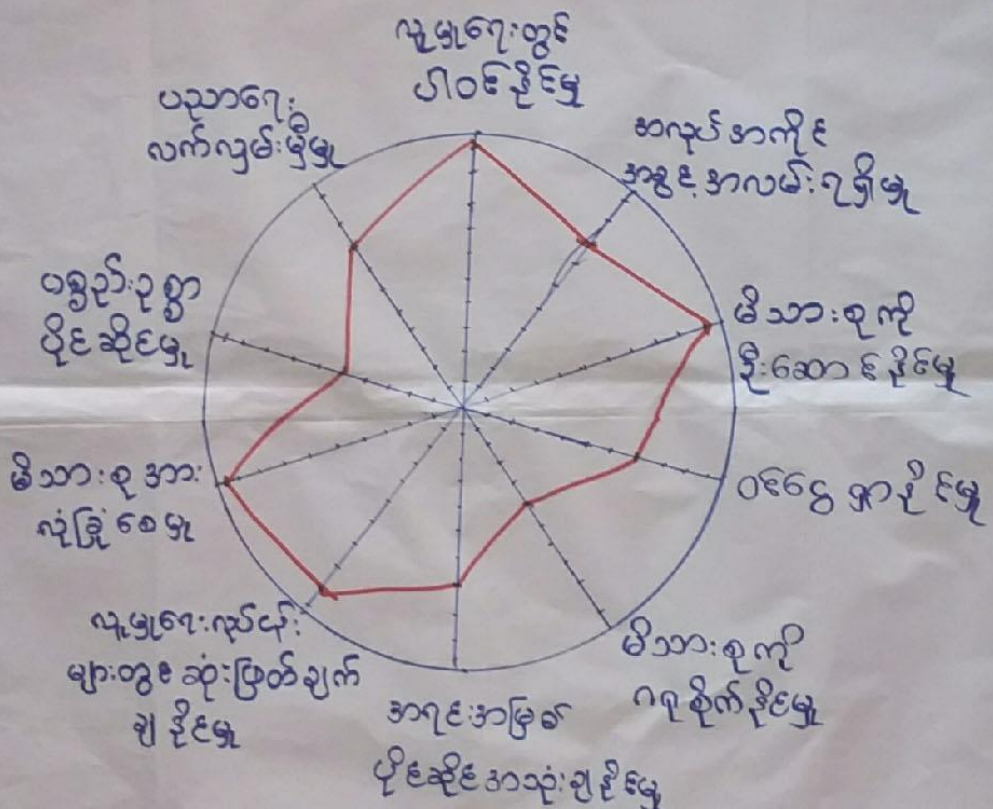 လူမှုရေးတွင်
ပါဝင်နိုင်မှု
အလုပ်အကိုင်
အခွင့်အလမ်းရရှိမှု
မိသားစုကို
ဦးဆောင်နိုင်မှု
ဝင်ငွေရှာနိုင်မှု
မိသားစုကို
ဂရုစိုက်နိုင်မှု
အရင်းအမြစ်
ပိုင်ဆိုင်အသုံးချနိုင်မှု
လူမှုရေးလုပ်ငန်း
များတွင်ဆုံးဖြတ်ချက်
ချနိုင်မှု
မိသားစုအား
လုံခြုံစေမှု
ပစ္စည်းဥစ္စာ
ပိုင်ဆိုင်မှု
ပညာရေး
လက်လှမ်းမှီမှု